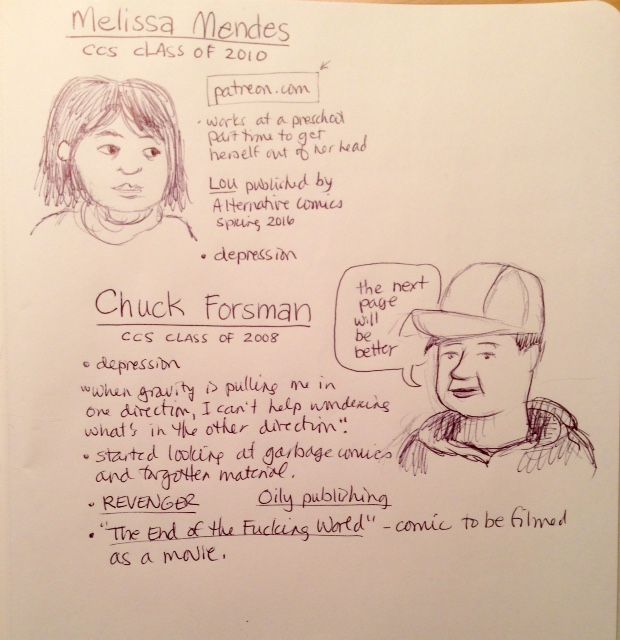 Melissa Mendes
CCS CLASS OF 2010
patreon.com
• works at a preschool
part time to get
herself out of her head
Lou published by
Alternative Comics
spring 2016
• depression
Chuck Forsman
CCS CLASS OF 2008
• depression
"when gravity is pulling me in
one direction, I can't help wondering
what's in the other direction".
• started looking at garbage comics
and forgotten material.
• REVENGER Oily publishing
• "The End of the Fucking World" - comic to be filmed
as a movie.
the next
page
will
be
better